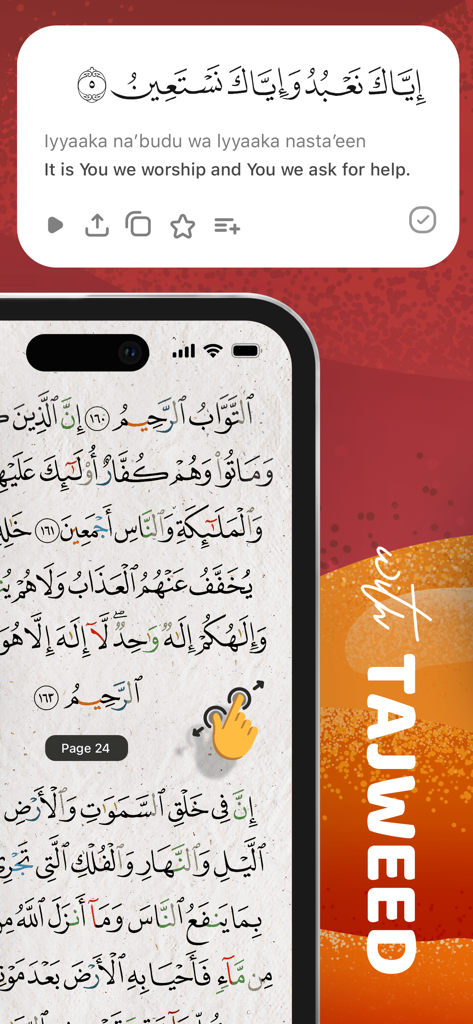 إِيَّاكَ نَعْبُدُ وَإِيَّاكَ نَسْتَعِينُ ٥
Iyyaaka na’budu wa Iyyaaka nasta’een
It is You we worship and You we ask for help.
ٱلتَّوَّابُ ٱلرَّحِيمُ ١٦٠ إِنَّ ٱلَّذِينَ
وَمَاتُوا۟ وَهُمْ كُفَّارٌ أُو۟لَـٰٓئِكَ
وَٱلْمَلَـٰٓئِكَةِ وَٱلنَّاسِ أَجْمَعِينَ ١٦١
يُخَفَّفُ عَنْهُمُ ٱلْعَذَابُ وَلَا هُمْ
وَإِلَـٰهُكُمْ إِلَـٰهٌ وَٰحِدٌ ۖ لَّآ إِلَـٰهَ إِلَّا هُوَ
ٱلرَّحِيمُ ١٦٣
Page 24
إِنَّ فِى خَلْقِ ٱلسَّمَـٰوَٰتِ وَٱلْأَرْضِ
ٱلَّيْلِ وَٱلنَّهَارِ وَٱلْفُلْكِ ٱلَّتِى تَجْرِى
بِمَا يَنفَعُ ٱلنَّاسَ وَمَآ أَنزَلَ ٱللَّهُ
مِن مَّآءٍ فَأَحْيَا بِهِ ٱلْأَرْضَ بَعْدَ
with TAJWEED